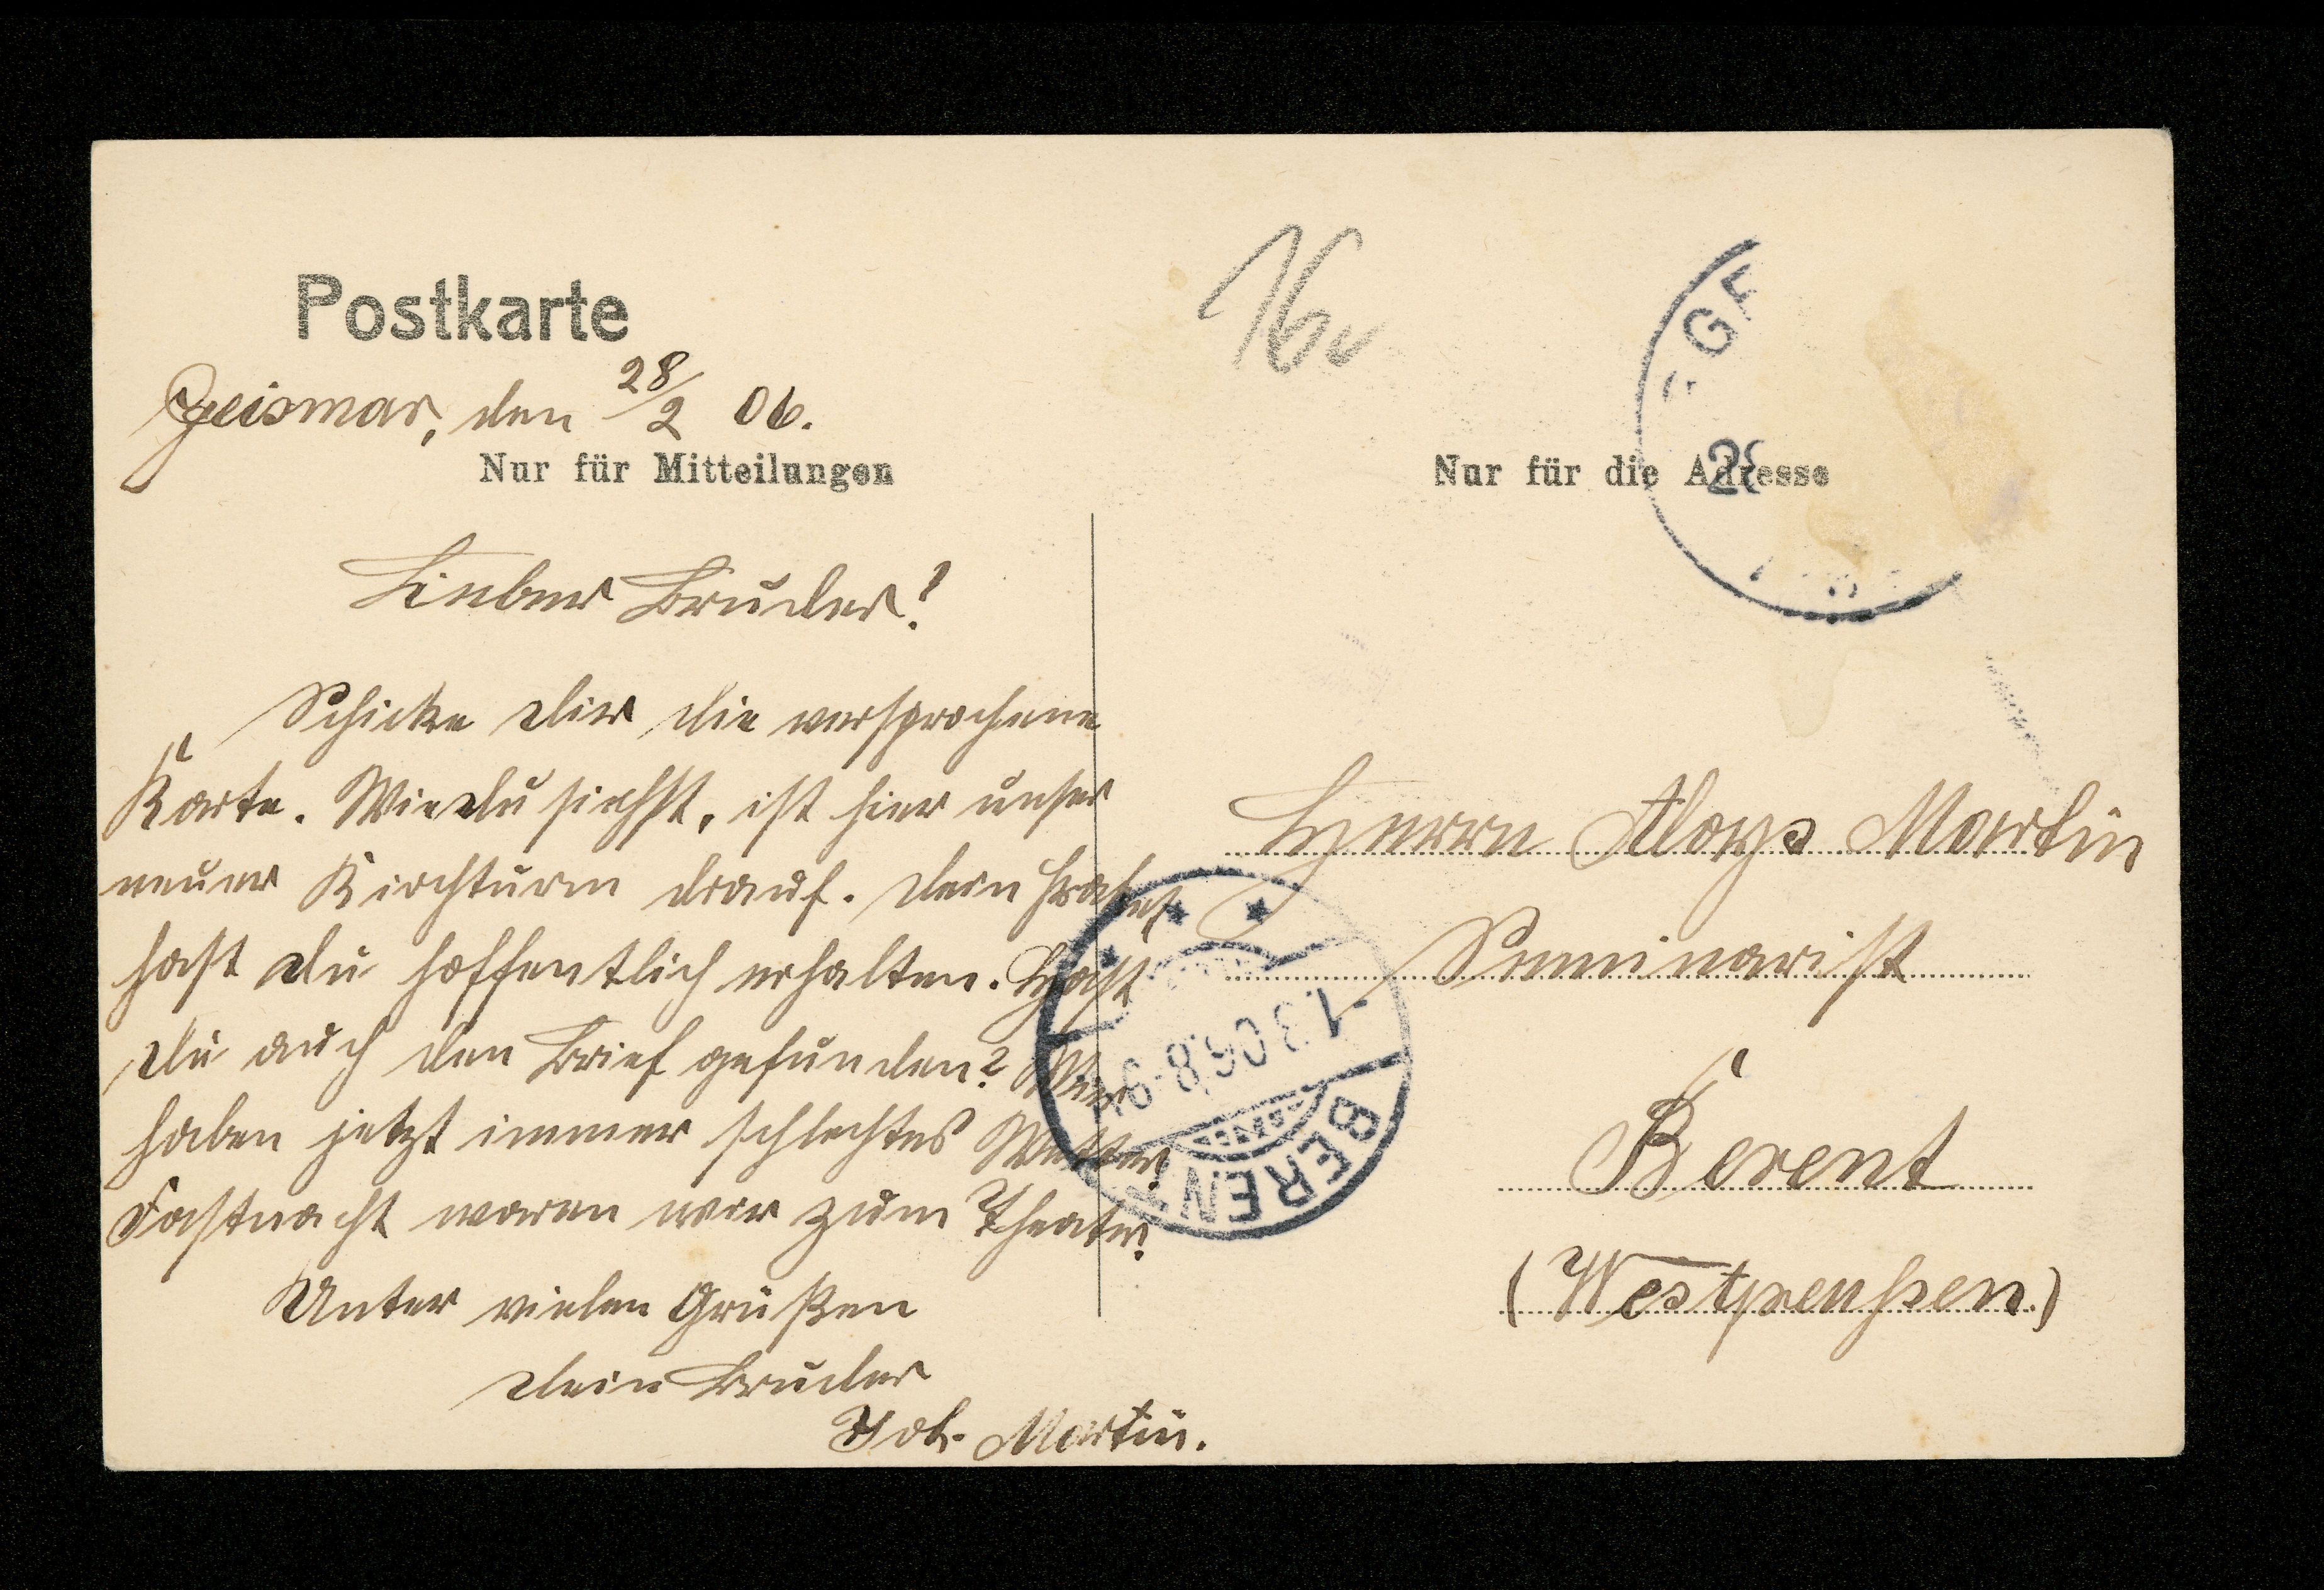 Postkarte
Geismar, den 28/2 06.
Nur für Mitteilungen
Lieber Bruder!
Schicke dir die versprochene
Karte. Wie du siehst, ist hier unser
neuer Kirchturm drauf. Dein
hast du hoffentlich erhalten. Hast
du auch den Brief gefunden? Wir
haben jetzt immer schlechtes Wetter.
Fastnacht waren wir zum Theater.
Unter vielen Grüßen
dein Bruder
Joh. Martin.
16
Nur für die Adresse
28
Herrn Aloys Martin
Seminarist
Berent
(Westpreußen.)
-1.3.06.8-9V
BERENT